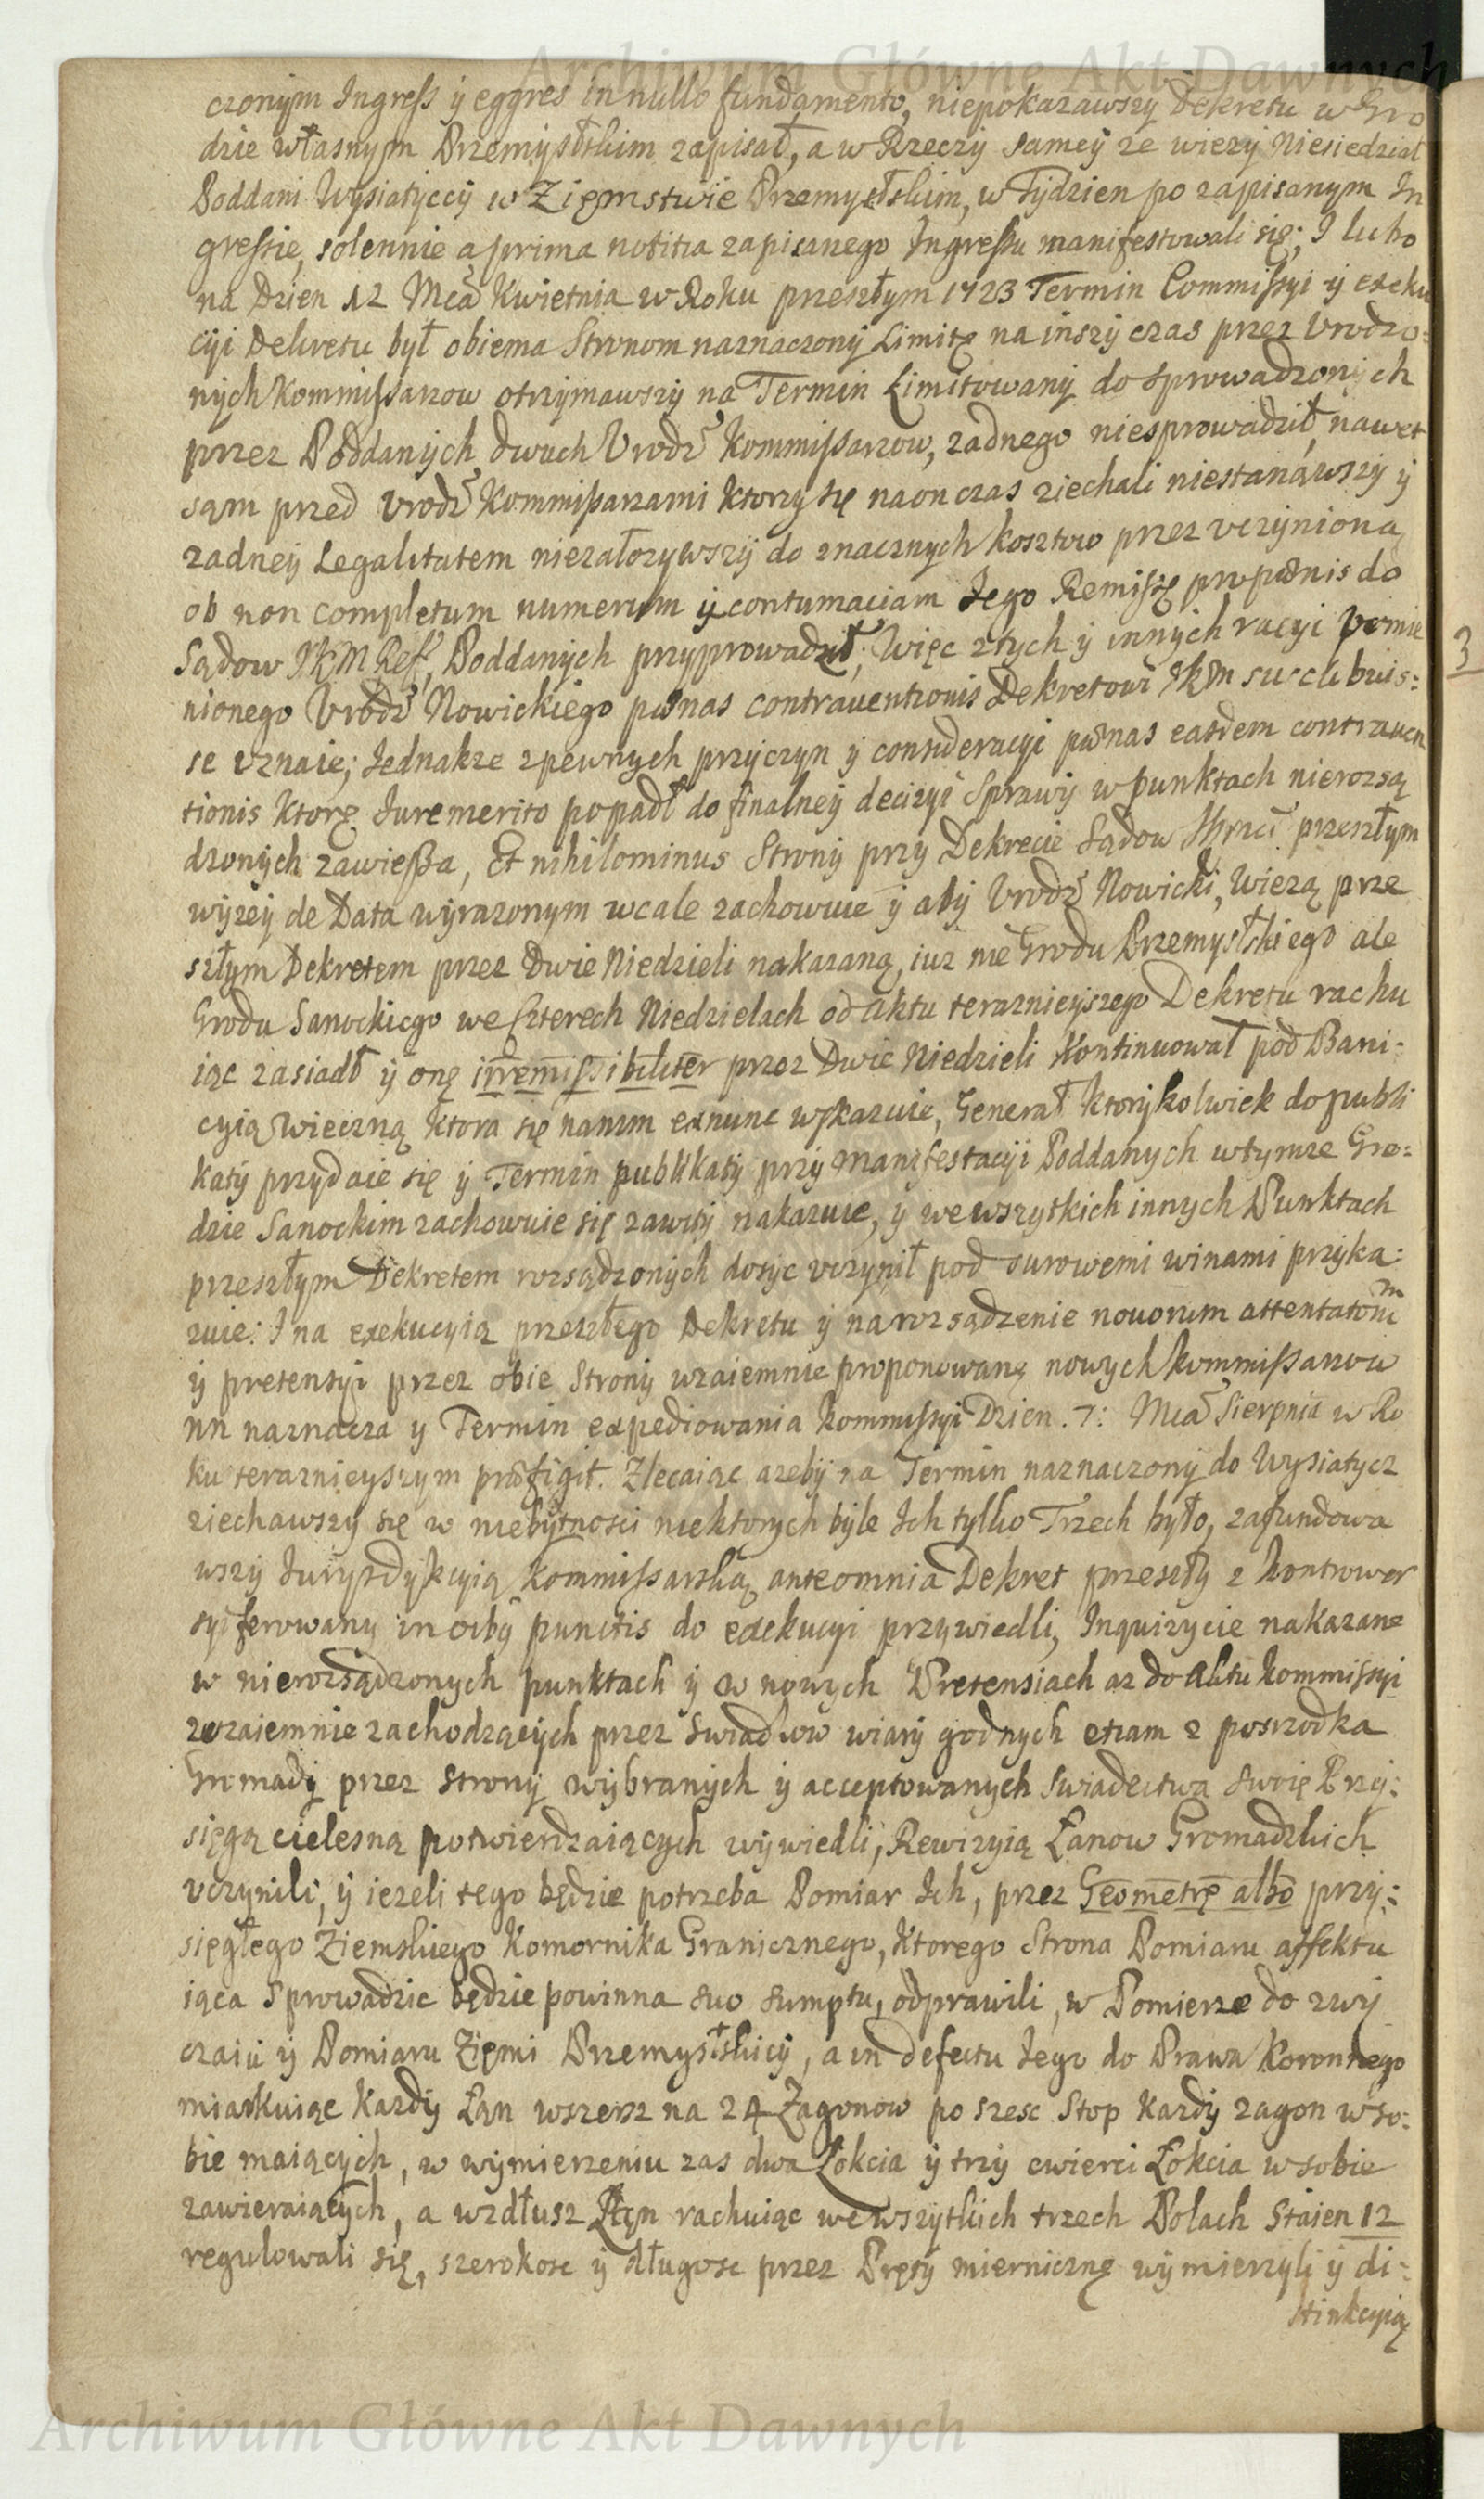 Archiwum Główne Akt Dawnych
czonym Ingress y eggres in nullo fundamento, niepokazawszy Dekretu w Gro
dzie własnym Przemysłskim zapisał, a w Rzeczy samey ze wiezy Niesiedział
Poddani Wysiatyccy w Ziemstwie Przemysłskim, w Tydzien po zapisanym In
gressie, solennie a prima notitia zapisanego Ingressu manifestowali się; I lubo
na Dzien 12 Mca Kwietnia w Roku przeszłym 1723 Termin Commissyi y exeku
cyi Dekretu był obiema Stronom naznaczony Limitę na inszy czas przez Vrodzo:
nych Kommissarzow otrzymawszy na Termin Limitowany do sprowadzonych
przez Poddanych dwuch Vrodz Kommissarzow, zadnego niesprowadził, nawet
sąm przed Vrodz Kommissarzami ktorzy się naonczas ziechali niestanąwszy y
zadney Legalitatem niezałozywszy do znacznych kosztow przez vczynioną
ob non completum numerum y contumaciam Jego Remissę pro pœnis do
Sądow JKM Reff, Poddanych przyprowadził; Więc ztych y innych racyi pomie
nionego Vrodz Nowickiego pœnas contraventionis Dekretowi JKM succubuis:
se vznaie; Jednakze zpewnych przyczyn y consideracyi pœnas easdem contraven
tionis ktorę Jure merito popadł do finalney decizyi Sprawy w punktach nierozsą
dzonych zawiesza, Et nihilominus Strony przy Dekrecie Sądow przeszłym
wyzey de Data wyrazonym wcale zachowuie y aby Vrodz Nowicki, Wiezą prze
szłym Dekretem przez Dwie Niedzieli nakazaną, iuz nie Grodu Przemysłskiego ale
Grodu Sanockiego we Czterech Niedzielach od aktu terazniejszego Dekretu rachu
iąc zasiadł y onę irremissibiliter przez Dwie Niedzieli kontinuował pod Bani:
cyią wieczną ktora się nanim exnunc wskazuie, Generał ktorykolwiek do publi
katy przydaie się y Termin publikaty przy manifestacyi Poddanych wtymze Gro:
dzie Sanockim zachowuie się zawity nakazuie, y we wszytkich innych Punktach
przeszłym Dekretem rozsądzonych dosyc vczynił pod surowemi winami przyka:
zuie: I na exekucyią przeszłego Dekretu y na rozsądzenie novorum attentatorum
y pretensyi przez obie Strony wzaiemnie proponowanę nowych kommissarzow
NN naznacza y Termin expediowania kommissyi Dzien .7: Mca Sierpnia w Ro
ku terazniejszym præfigit. Zlecaiąc azeby na Termin naznaczony do Wysiatycz
ziechawszy się w niebytnosci niektorych byle Ich tylko Trzech było, zafundowa
wszy Jurysdykcyią kommissarską ante omnia Dekret przeszły z kontrower
syi ferowany in oibg punctis do exekucyi przywiedli, Inquizycie nakazane
w nierozsądzonych punktach y w nowych Pretensiach az do aktu kommissyi
zwzaiemnie zachodzących przez swiadkow wiary godnych etiam z posrzodka
Gromady przez strony wybranych y acceptowanych swiadectwa swoię Przy:
sięgą cielesną potwierdzaiących wywiedli, Rewizyią Łanow Gromadzkich
vczynili, y iezeli tego będzie potrzeba Pomiar Ich, przez Geometrę albo przy:
sięgłego Ziemskiego Komornika Granicznego, ktorego Strona Pomiaru affektu
iąca sprowadzic będzie powinna suo sumptu, odprawili, w Pomierze do zwy
czaiu y Pomiaru Ziemi Przemysłskiey, a in defectu Jego do Prawa Koronnego
miarkuiąc Kazdy Łąn wszerz na 24 Zagonow po szesc Stop kazdy zagon wso:
bie maiących, w wymierzeniu zas dwa Łokcia y trzy cwierci Łokcia wsobie
zawieraiących, a wzdłusz Łąn rachuiąc we wszytkich trzech Polach Staien 12
regulowali się, szerokosc y długosc przez Pręty mierniczę wymierzyli y di:
stinkcyią
3
Archiwum Główne Akt Dawnych